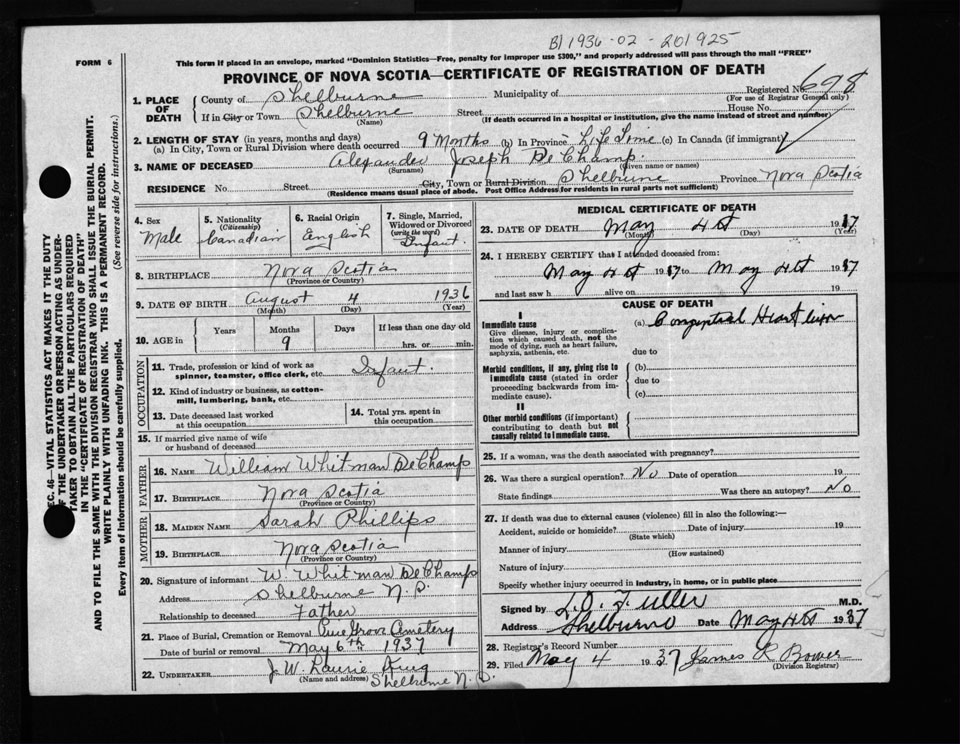 B) 1936-02-201925
FORM 6
This form if placed in an envelope, marked "Dominion Statistics—Free, penalty for improper use $300," and properly addressed will pass through the mail "FREE"
PROVINCE OF NOVA SCOTIA—CERTIFICATE OF REGISTRATION OF DEATH
Registered No. 698
(For use of Registrar General only)
1. PLACE OF DEATH
County of Shelburne Municipality of
If in City or Town Shelburne Street House No.
(Name) (If death occurred in a hospital or institution, give the name instead of street and number)
2. LENGTH OF STAY (in years, months and days)
(a) In City, Town or Rural Division where death occurred 9 Months (b) In Province Life Time (c) In Canada (if immigrant)
3. NAME OF DECEASED Alexander Joseph DeChamp.
(Surname) (Given name or names)
RESIDENCE No. Street City, Town or Rural Division Shelburne Province Nova Scotia
(Residence means usual place of abode. Post Office Address for residents in rural parts not sufficient)
4. Sex Male
5. Nationality (Citizenship) Canadian
6. Racial Origin English
7. Single, Married, Widowed or Divorced (write the word) Infant.
8. BIRTHPLACE Nova Scotia
(Province or Country)
9. DATE OF BIRTH August 4 1936
(Month) (Day) (Year)
10. AGE in Years Months 9 Days If less than one day old hrs. or min.
OCCUPATION
11. Trade, profession or kind of work as spinner, teamster, office clerk, etc. Infant.
12. Kind of industry or business, as cotton-mill, lumbering, bank, etc.
13. Date deceased last worked at this occupation
14. Total yrs. spent in this occupation
15. If married give name of wife or husband of deceased
FATHER
16. NAME William Whitman DeChamp
17. BIRTHPLACE Nova Scotia
(Province or Country)
MOTHER
18. MAIDEN NAME Sarah Phillips
19. BIRTHPLACE Nova Scotia
(Province or Country)
20. Signature of informant W. Whitman DeChamps
Address Shelburne N.S.
Relationship to deceased Father
21. Place of Burial, Cremation or Removal Pine Grove Cemetery
Date of burial or removal May 6th 1937
22. UNDERTAKER J. W. Laurie King
(Name and address) Shelburne N.S.
MEDICAL CERTIFICATE OF DEATH
23. DATE OF DEATH May 4th 1937
(Month) (Day) (Year)
24. I HEREBY CERTIFY that I attended deceased from:
May 4th 1937 to May 4th 1937
and last saw h alive on 19
CAUSE OF DEATH
I
Immediate cause (a) Congenital Heart
Give disease, injury or complication which caused death, not the mode of dying, such as heart failure, asphyxia, asthenia, etc.
due to
Morbid conditions, if any, giving rise to immediate cause (stated in order proceeding backwards from immediate cause)
(b)
due to
(c)
II
Other morbid conditions (if important) contributing to death but not causally related to immediate cause.
25. If a woman, was the death associated with pregnancy?
26. Was there a surgical operation? No Date of operation 19
State findings Was there an autopsy? No
27. If death was due to external causes (violence) fill in also the following:—
Accident, suicide or homicide? Date of injury 19
(State which)
Manner of injury
(How sustained)
Nature of injury
Specify whether injury occurred in industry, in home, or in public place
Signed by L.O. Fuller M.D.
Address Shelburne Date May 4th 1937
28. Registrar's Record Number
29. Filed May 4 1937 James R Bower
(Division Registrar)
SEC. 46—VITAL STATISTICS ACT MAKES IT THE DUTY
OF THE UNDERTAKER OR PERSON ACTING AS UNDER-
TAKER TO OBTAIN ALL THE PARTICULARS REQUIRED
IN THE "CERTIFICATE OF REGISTRATION OF DEATH"
AND TO FILE THE SAME WITH THE DIVISION REGISTRAR WHO SHALL ISSUE THE BURIAL PERMIT.
WRITE PLAINLY WITH UNFADING INK. THIS IS A PERMANENT RECORD.
Every item of information should be carefully supplied. (See reverse side for instructions.)